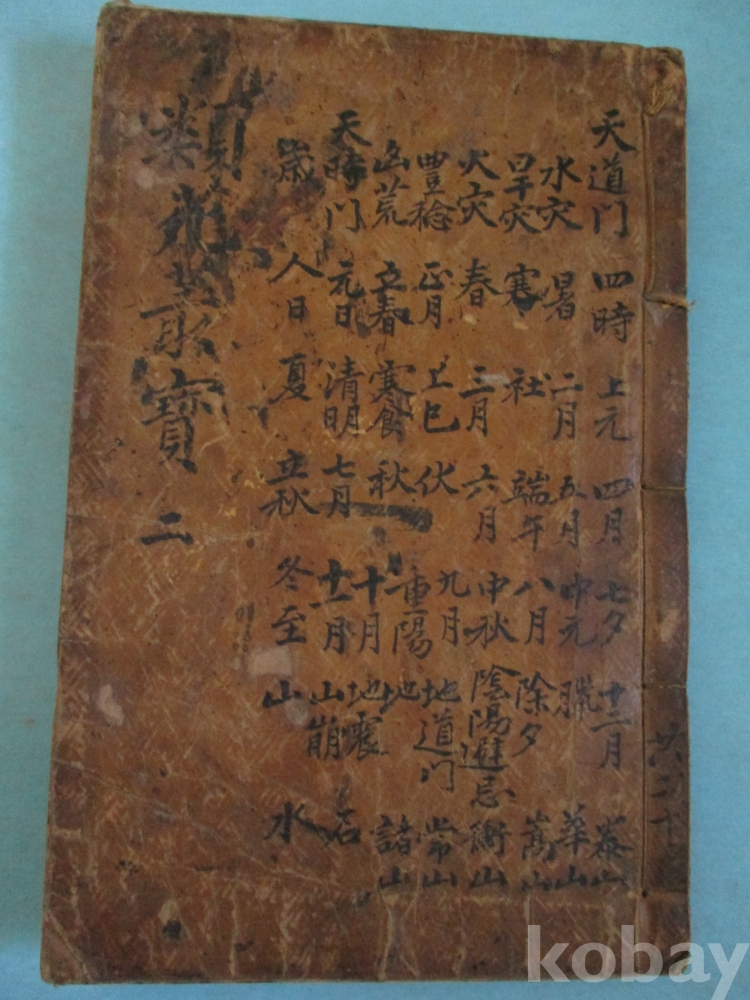 天道门
水灾
旱灾
火灾
豊稔
凶荒
天時门
歲
四時
暑
寒
春
正月
立春
元日
人日
上元
二月
社
三月
上巳
寒食
清明
夏
四月
五月
端午
六月
伏
秋
七月
立秋
七夕
中元
八月
中秋
九月
重陽
十月
十一月
冬至
十二月
臘
除夕
陰陽避忌
地道门
地
地震
山崩
山
泰山
華山
嵩山
衡山
常山
諸山
石
水
類苑叢寶 二
共二十
kobay